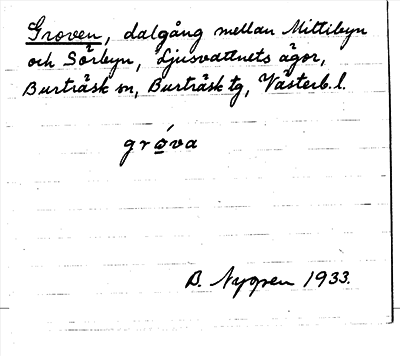 Groven, dalgång mellan Mittibyn
och Sörbyn, Ljusvattnets ägor,
Burträsk sn, Burträsk tg, Västerb. l.
grǿ̱va
B. Nygren 1933.